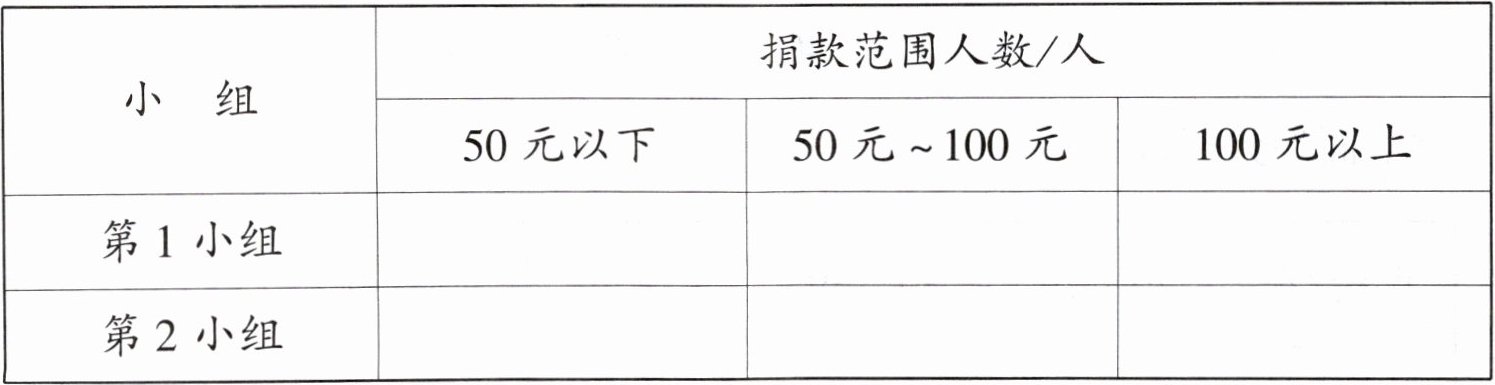 捐款范围人数/人
小 组
50 元以下 50 元~100 元 100 元以上
第 1 小组
第 2 小组